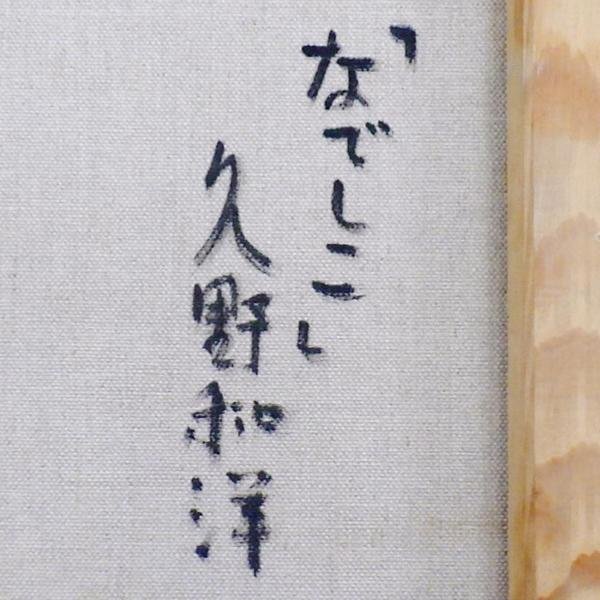 「なでしこ」
久野和洋